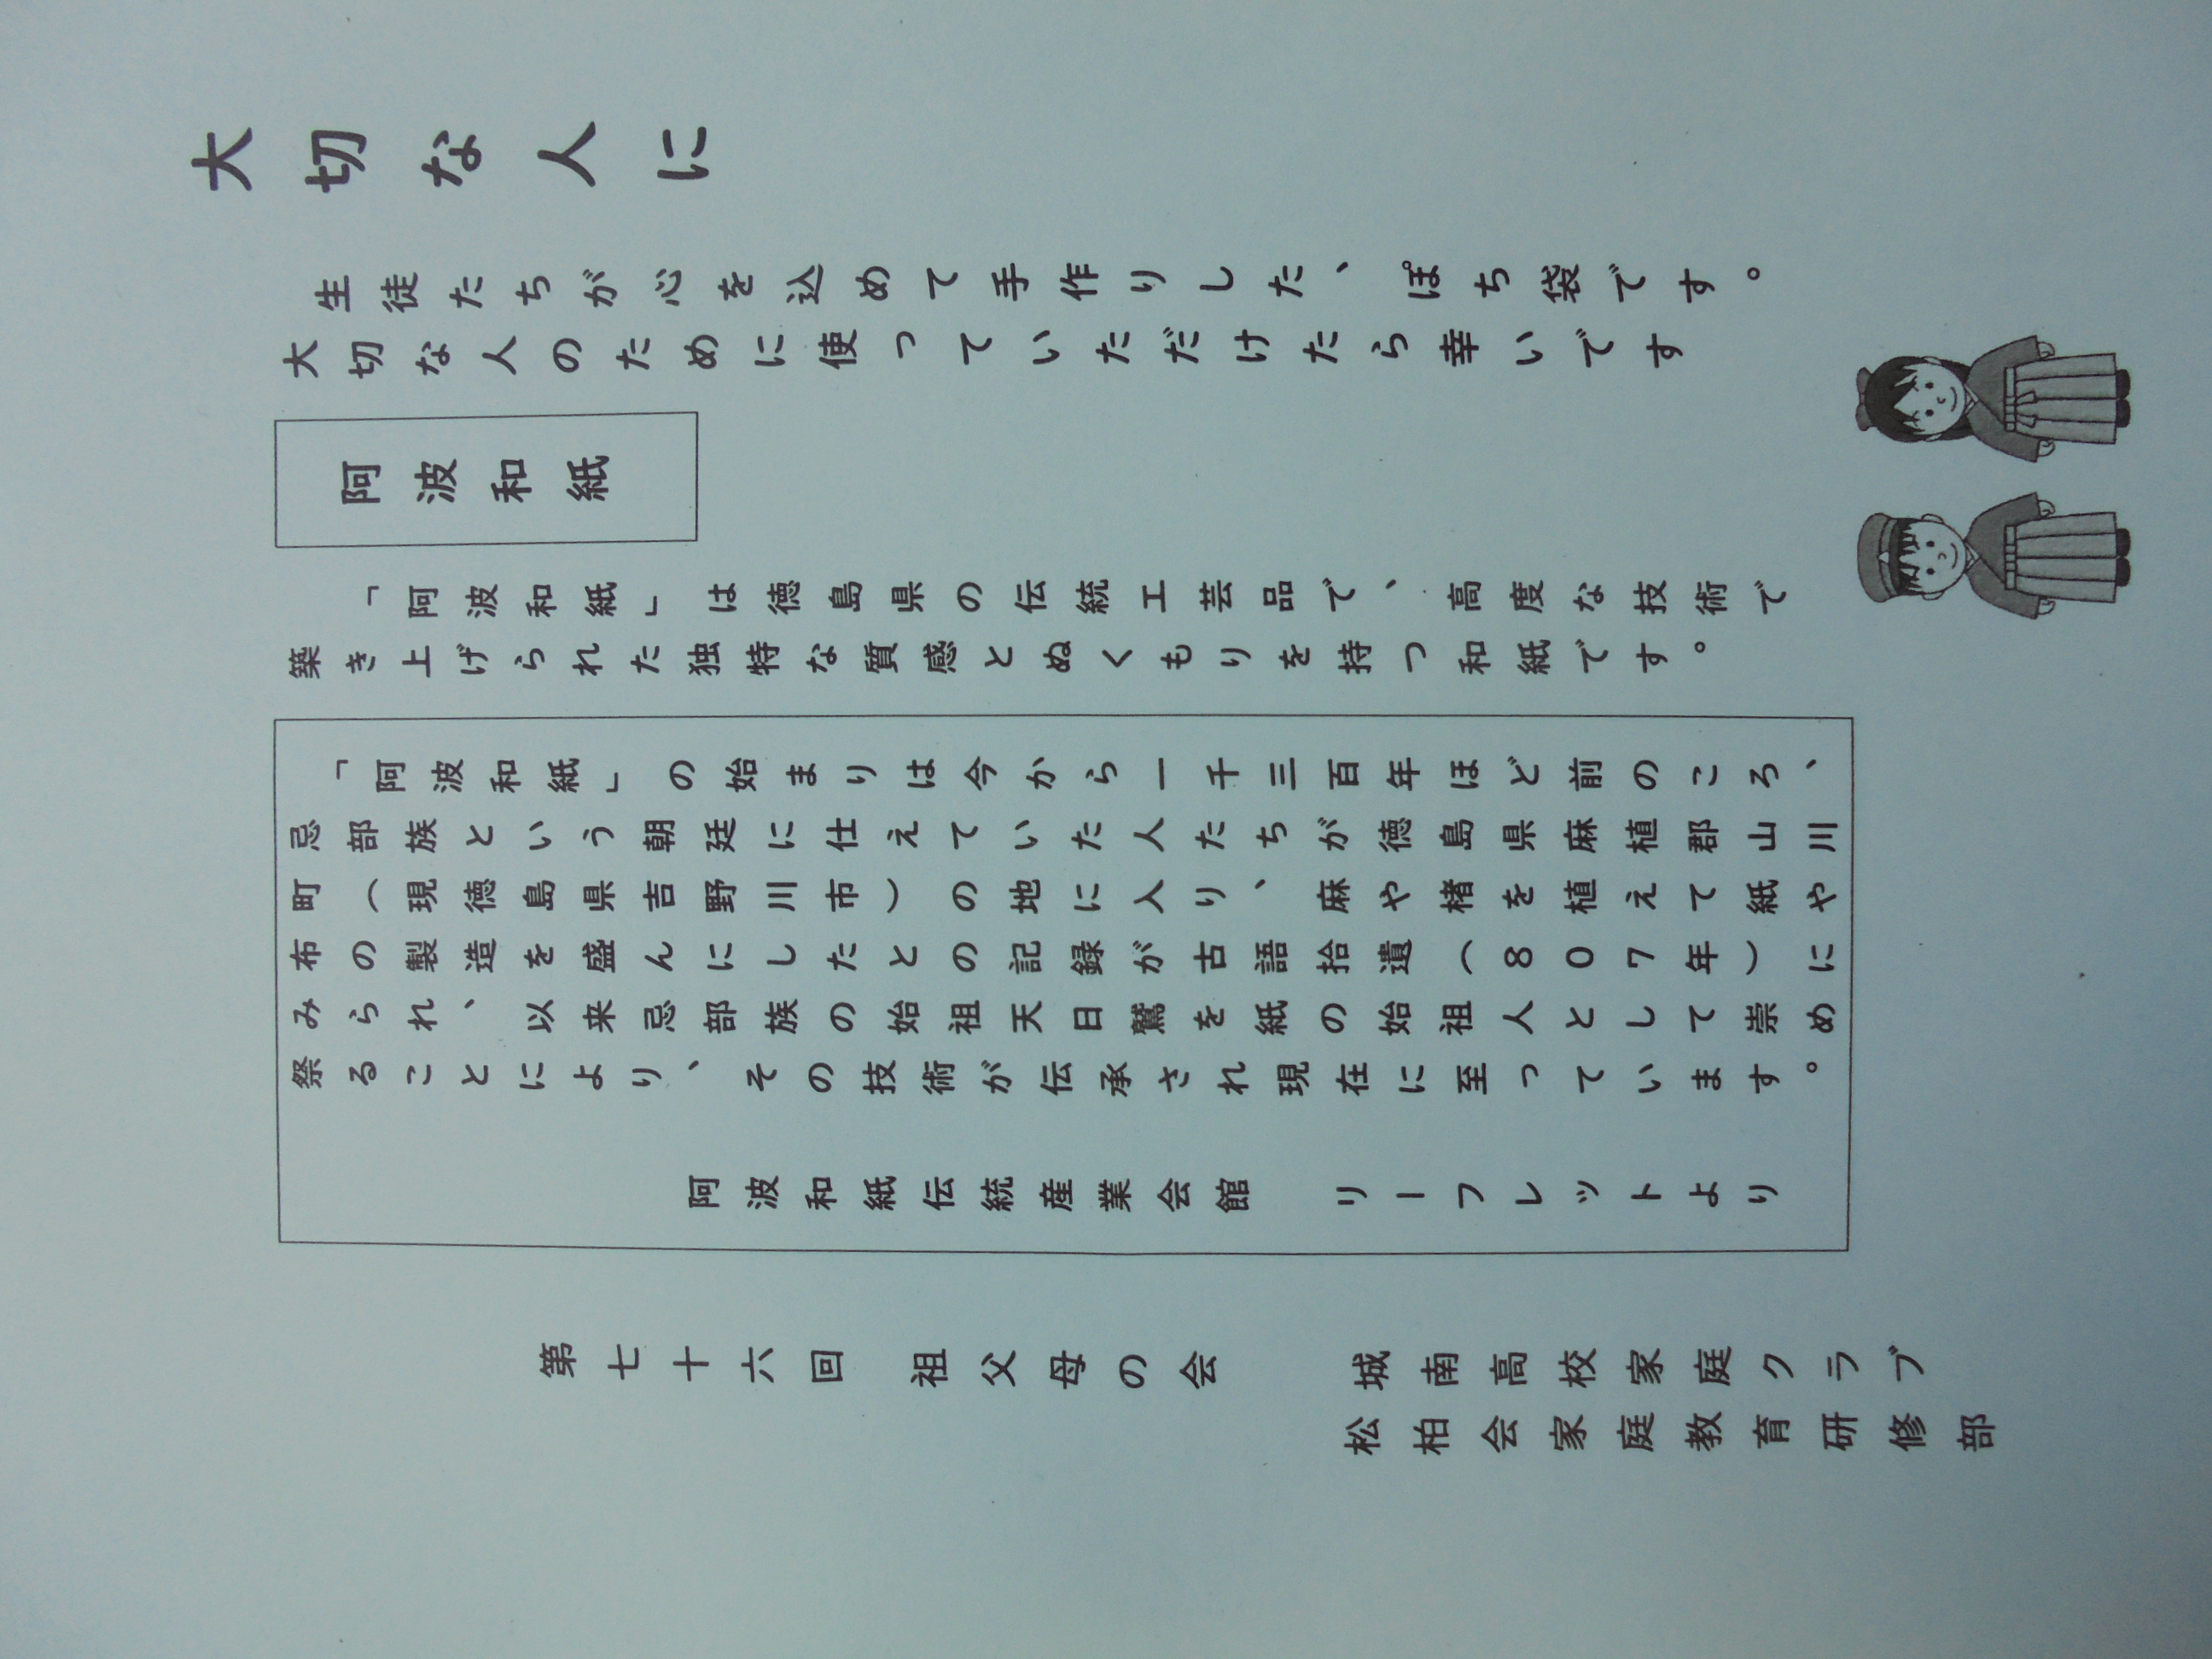 大切な人に
生徒たちが心を込めて手作りした、ぽち袋です。
大切な人のために使っていただけたら幸いです
阿波和紙
「阿波和紙」は徳島県の伝統工芸品で、高度な技術で
築き上げられた独特な質感とぬくもりを持つ和紙です。
「阿波和紙」の始まりは今から一千三百年ほど前のころ、
忌部族という朝廷に仕えていた人たちが徳島県麻植郡山川
町(現徳島県吉野川市)の地に入り、麻や楮を植えて紙や
布の製造を盛んにしたとの記録が古語拾遺(807年)に
みられ、以来忌部族の始祖天日鷲を紙の始祖人として崇め
祭ることにより、その技術が伝承され現在に至っています。
阿波和紙伝統産業会館 リーフレットより
第七十六回 祖父母の会
城南高校家庭クラブ
松柏会家庭教育研修部